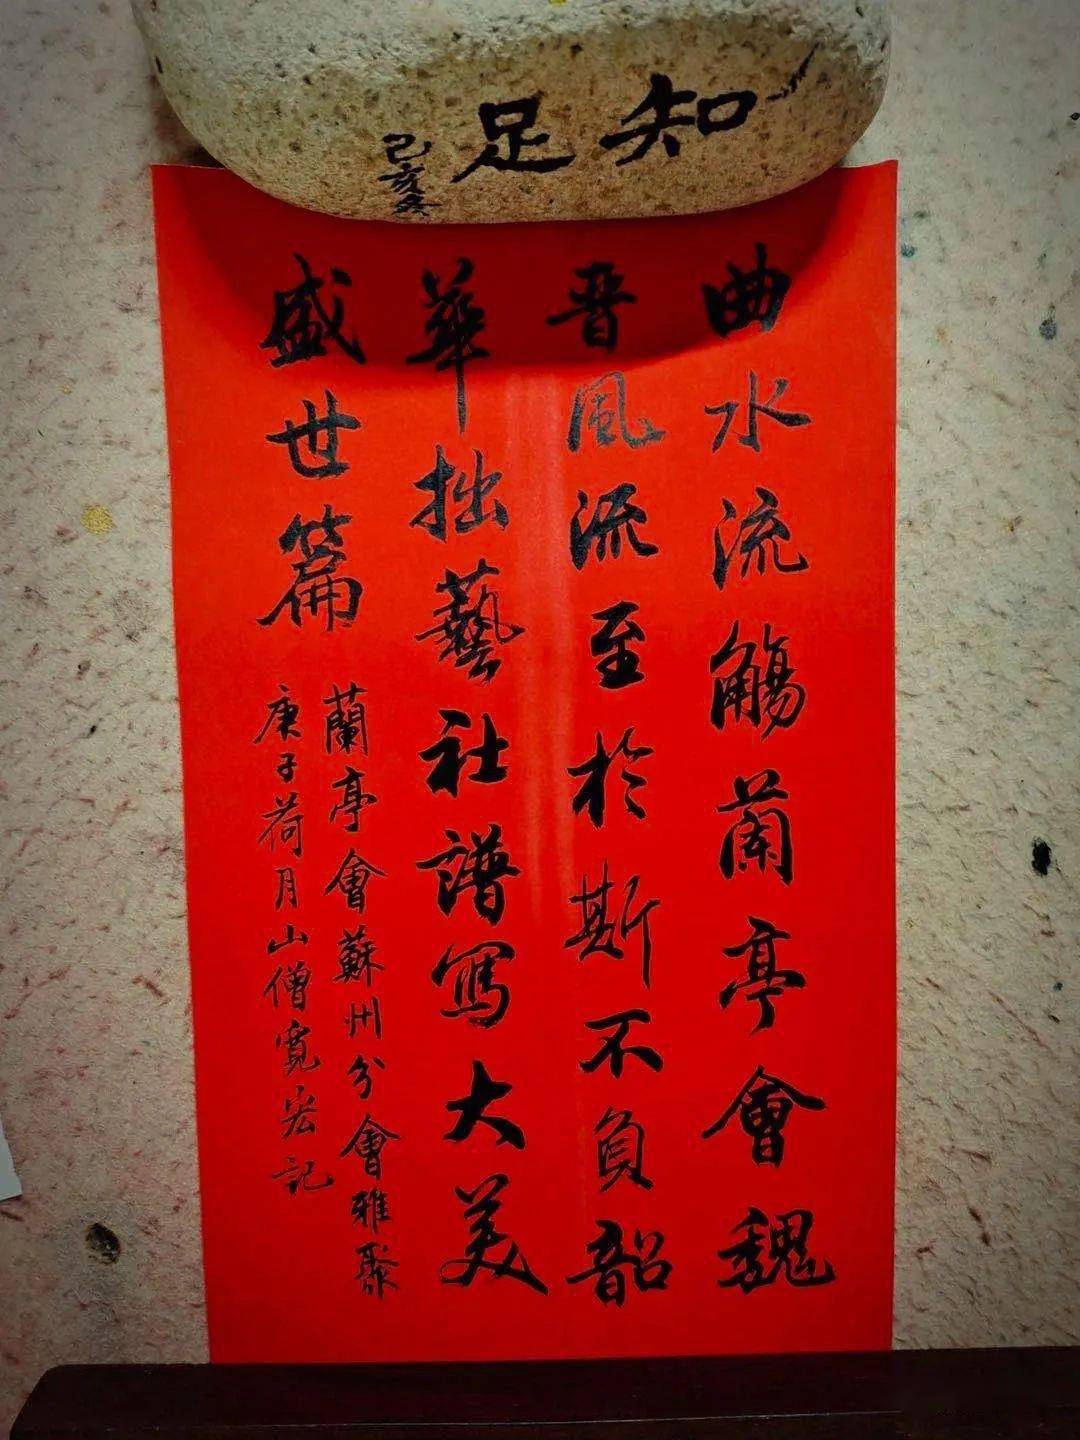 知足
己亥冬
曲水流觴蘭亭會魏
晋風流至於斯不負韶
華拙藝社譜寫大美
盛世篇
蘭亭會蘇州分會雅聚
庚子荷月山僧寬宏記